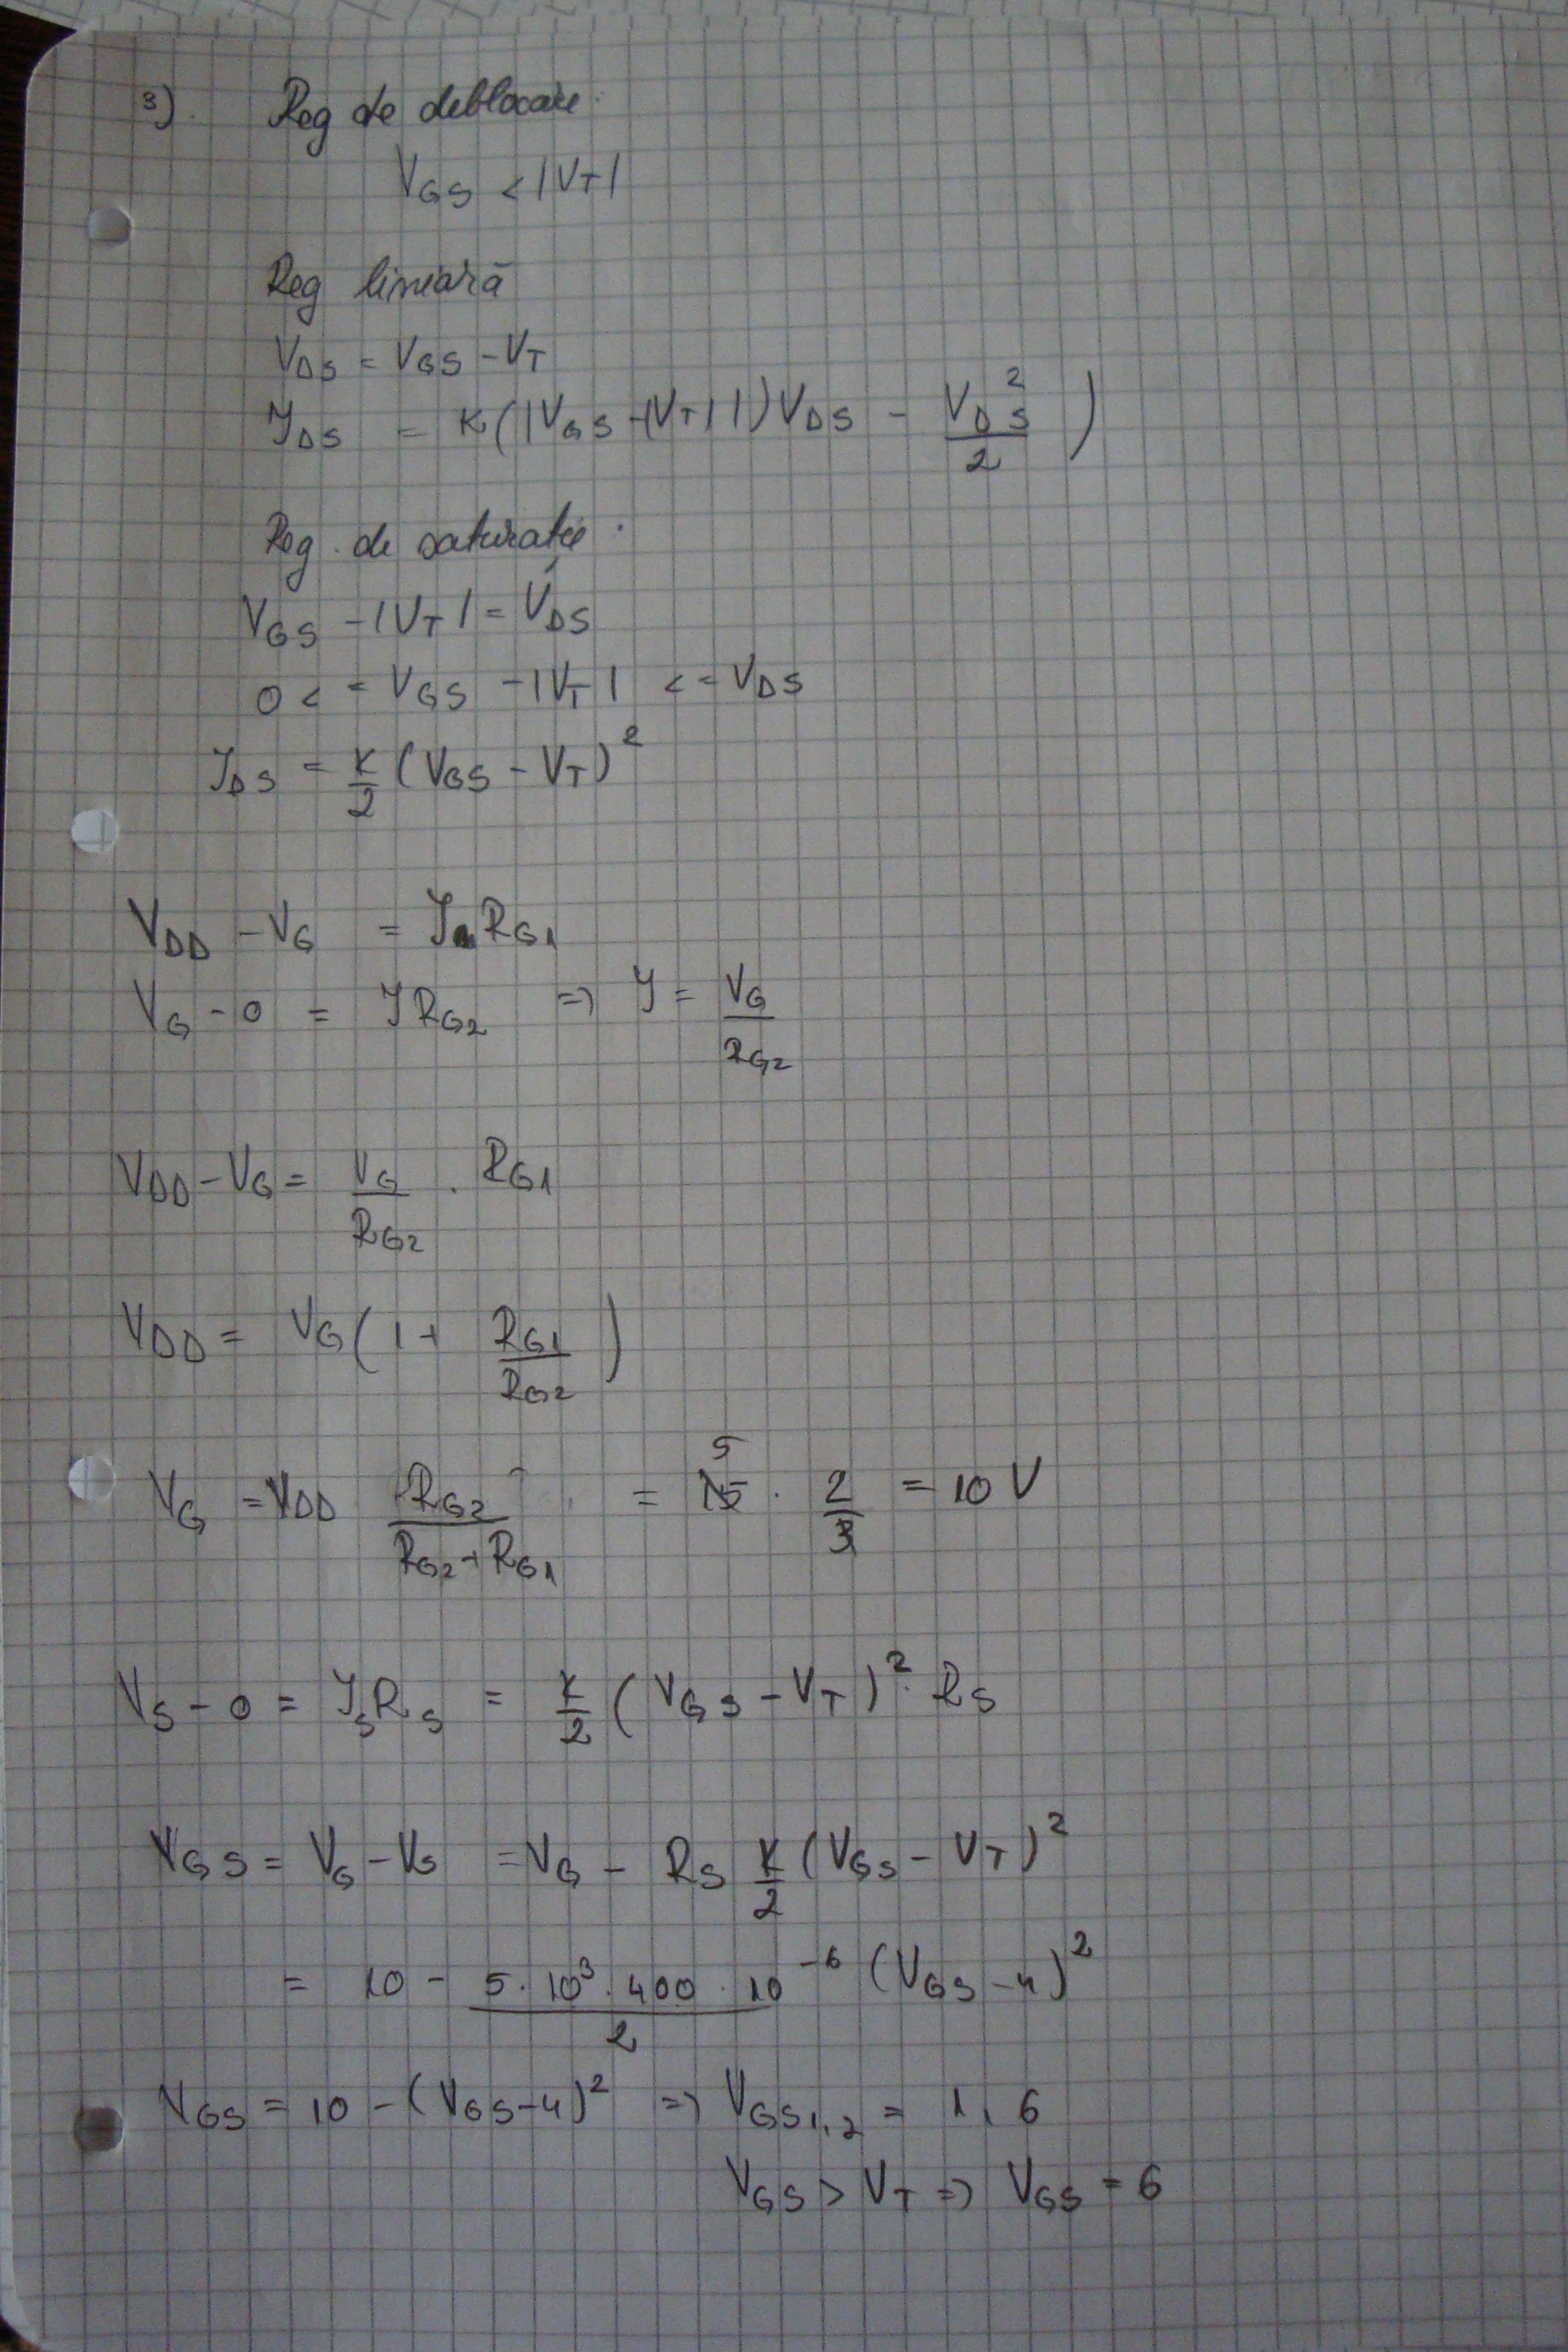 3). Reg de deblocare
V_GS < |V_T|
Reg liniară
V_DS = V_GS - V_T
I_DS = K(|V_GS -|V_T||)V_DS - V_DS^2/2)
Reg. de saturație.
V_GS - |V_T| = V_DS
0 < = V_GS - |V_T| < = V_DS
I_DS = K/2 (V_GS - V_T)^2
V_DD - V_G = I R_G1
V_G - 0 = I R_G2 => I = V_G/R_G2
V_DD - V_G = V_G/R_G2 . R_G1
V_DD = V_G(1 + R_G1/R_G2)
V_G = V_DD R_G2/(R_G2 + R_G1) = 15 5 . 2/3 = 10 V
V_S - 0 = I_S R_S = K/2 (V_GS - V_T)^2 . R_S
V_GS = V_G - V_S = V_G - R_S K/2 (V_GS - V_T)^2
= 10 - 5 . 10^3 . 400 . 10^-6/2 (V_GS - 4)^2
V_GS = 10 - (V_GS - 4)^2 => V_GS1,2 = 1, 6
V_GS > V_T => V_GS = 6